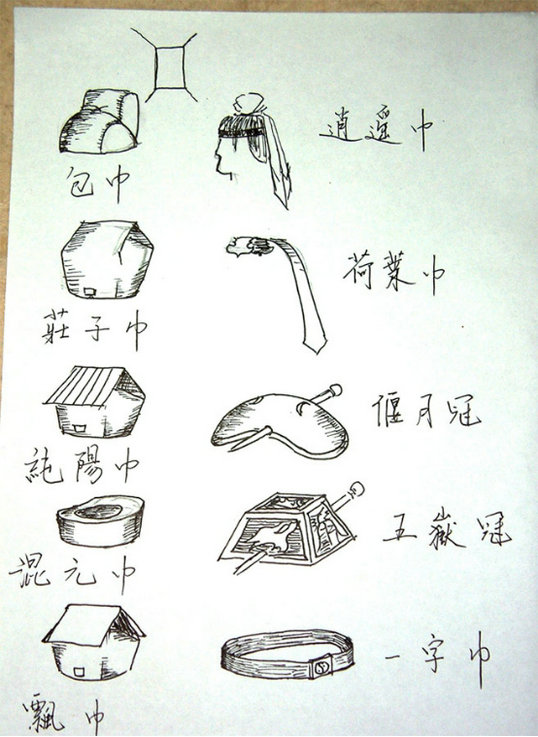 包巾
逍遥巾
莊子巾
荷葉巾
純陽巾
偃月冠
混元巾
五嶽冠
飄巾
一字巾